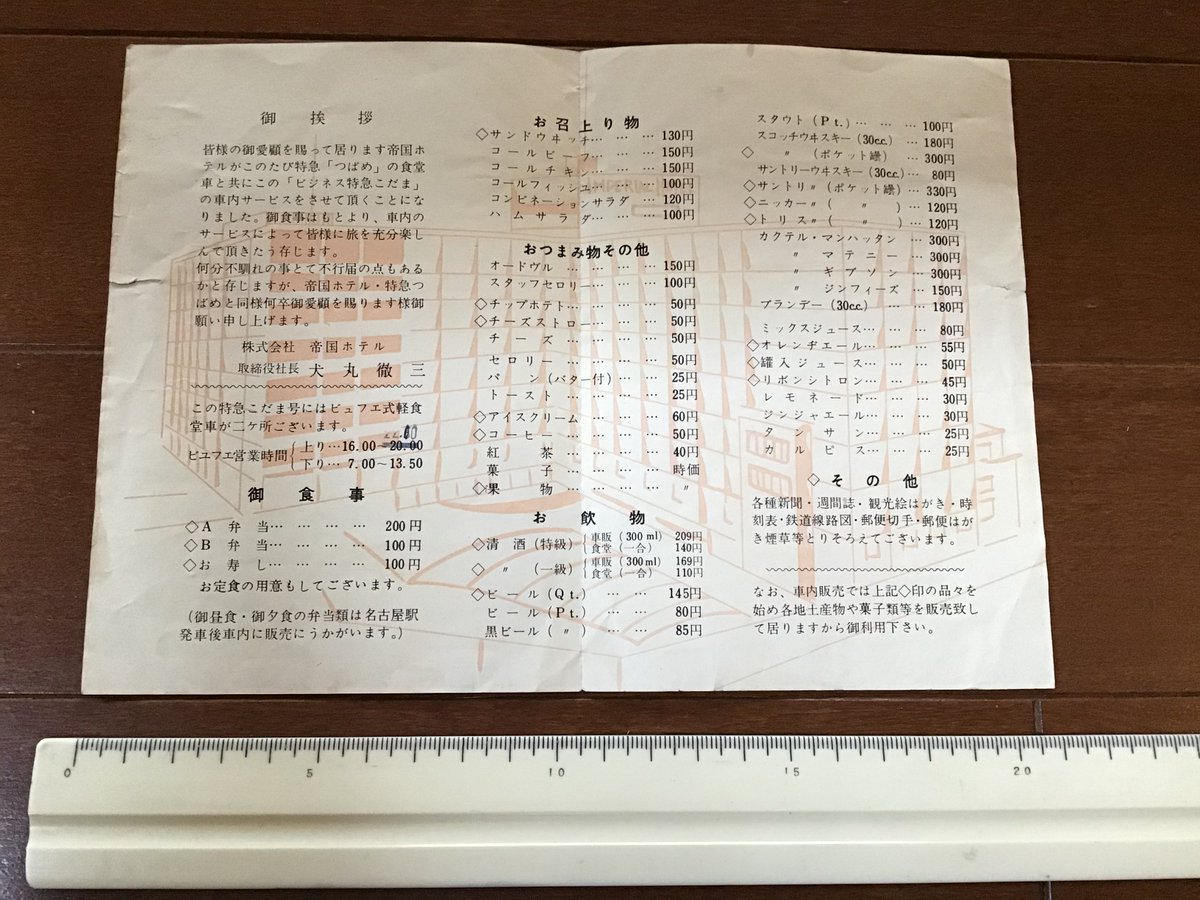 御挨拶
皆様の御愛顧を賜って居ります帝国ホ
テルがこのたび特急「つばめ」の食堂
車と共にこの「ビジネス特急こだま」
の車内サービスをさせて頂くことにな
りました。御食事はもとより、車内の
サービスによって皆様に旅を充分楽し
んで頂きたう存じます。
何分不馴れの事とて不行届の点もある
かと存じますが、帝国ホテル・特急つ
ばめと同様何卒御愛顧を賜ります様御
願い申し上げます。
株式会社 帝国ホテル
取締役社長 犬丸徹三
この特急こだま号にはビュフエ式軽食
堂車が二ケ所ございます。
ビユフエ営業時間
上り…16.00~20.00
下り…7.00~13.50
御食事
◇A弁当… … … … 200円
◇B弁当… … … … 100円
◇お寿し… … … … 100円
お定食の用意もしてございます。
(御昼食・御夕食の弁当類は名古屋駅
発車後車内に販売にうかがいます。)
お召上り物
◇サンドウヰッチ… … … 130円
コールビーフ… … … 150円
コールチキン… … … 150円
コールフィッシュ… … … 100円
コンビネーションサラダ… 120円
ハムサラダ… … … 100円
おつまみ物その他
オードヴル… … … 150円
スタッフセロリー… … … 100円
◇チップポテト… … … 50円
◇チーズストロー… … … 50円
チーズ… … … 50円
セロリー… … … 50円
パン(バター付)… … … 25円
トースト… … … 25円
◇アイスクリーム… … … 60円
◇コーヒー… … … 50円
紅茶… … … 40円
菓子… … … 時価
◇果物… … … 〃
お飲物
◇清酒(特級) 車販(300ml) 209円
食堂(一合) 140円
◇〃(一級) 車販(300ml) 169円
食堂(一合) 110円
◇ビール(Qt.)… … … 145円
ビール(Pt.)… … 80円
黒ビール(〃)… … 85円
スタウト(Pt.)… … … 100円
スコッチウヰスキー(30c.c.)… 180円
◇〃(ポケット罎)… 300円
サントリーウヰスキー(30c.c.)… 80円
◇サントリ〃(ポケット罎)… 330円
◇ニッカー〃(〃)… 120円
◇トリス〃(〃)… 120円
カクテル・マンハッタン… 300円
〃マテニー… 300円
〃ギブソン… 300円
〃ジンフィーズ… 150円
ブランデー(30c.c.)… … 180円
ミックスジュース… … … 80円
◇オレンヂエール… … … 55円
◇罐入ジュース… … … 50円
◇リボンシトロン… … … 45円
レモネード… … … 30円
ジンジャエール… … … 30円
タンサン… … … 25円
カルピス… … … 25円
◇その他
各種新聞・週間誌・観光絵はがき・時
刻表・鉄道線路図・郵便切手・郵便はが
き煙草等とりそろえてございます。
なお、車内販売では上記◇印の品々を
始め各地土産物や菓子類等を販売致し
て居りますから御利用下さい。
0 5 10 15 20